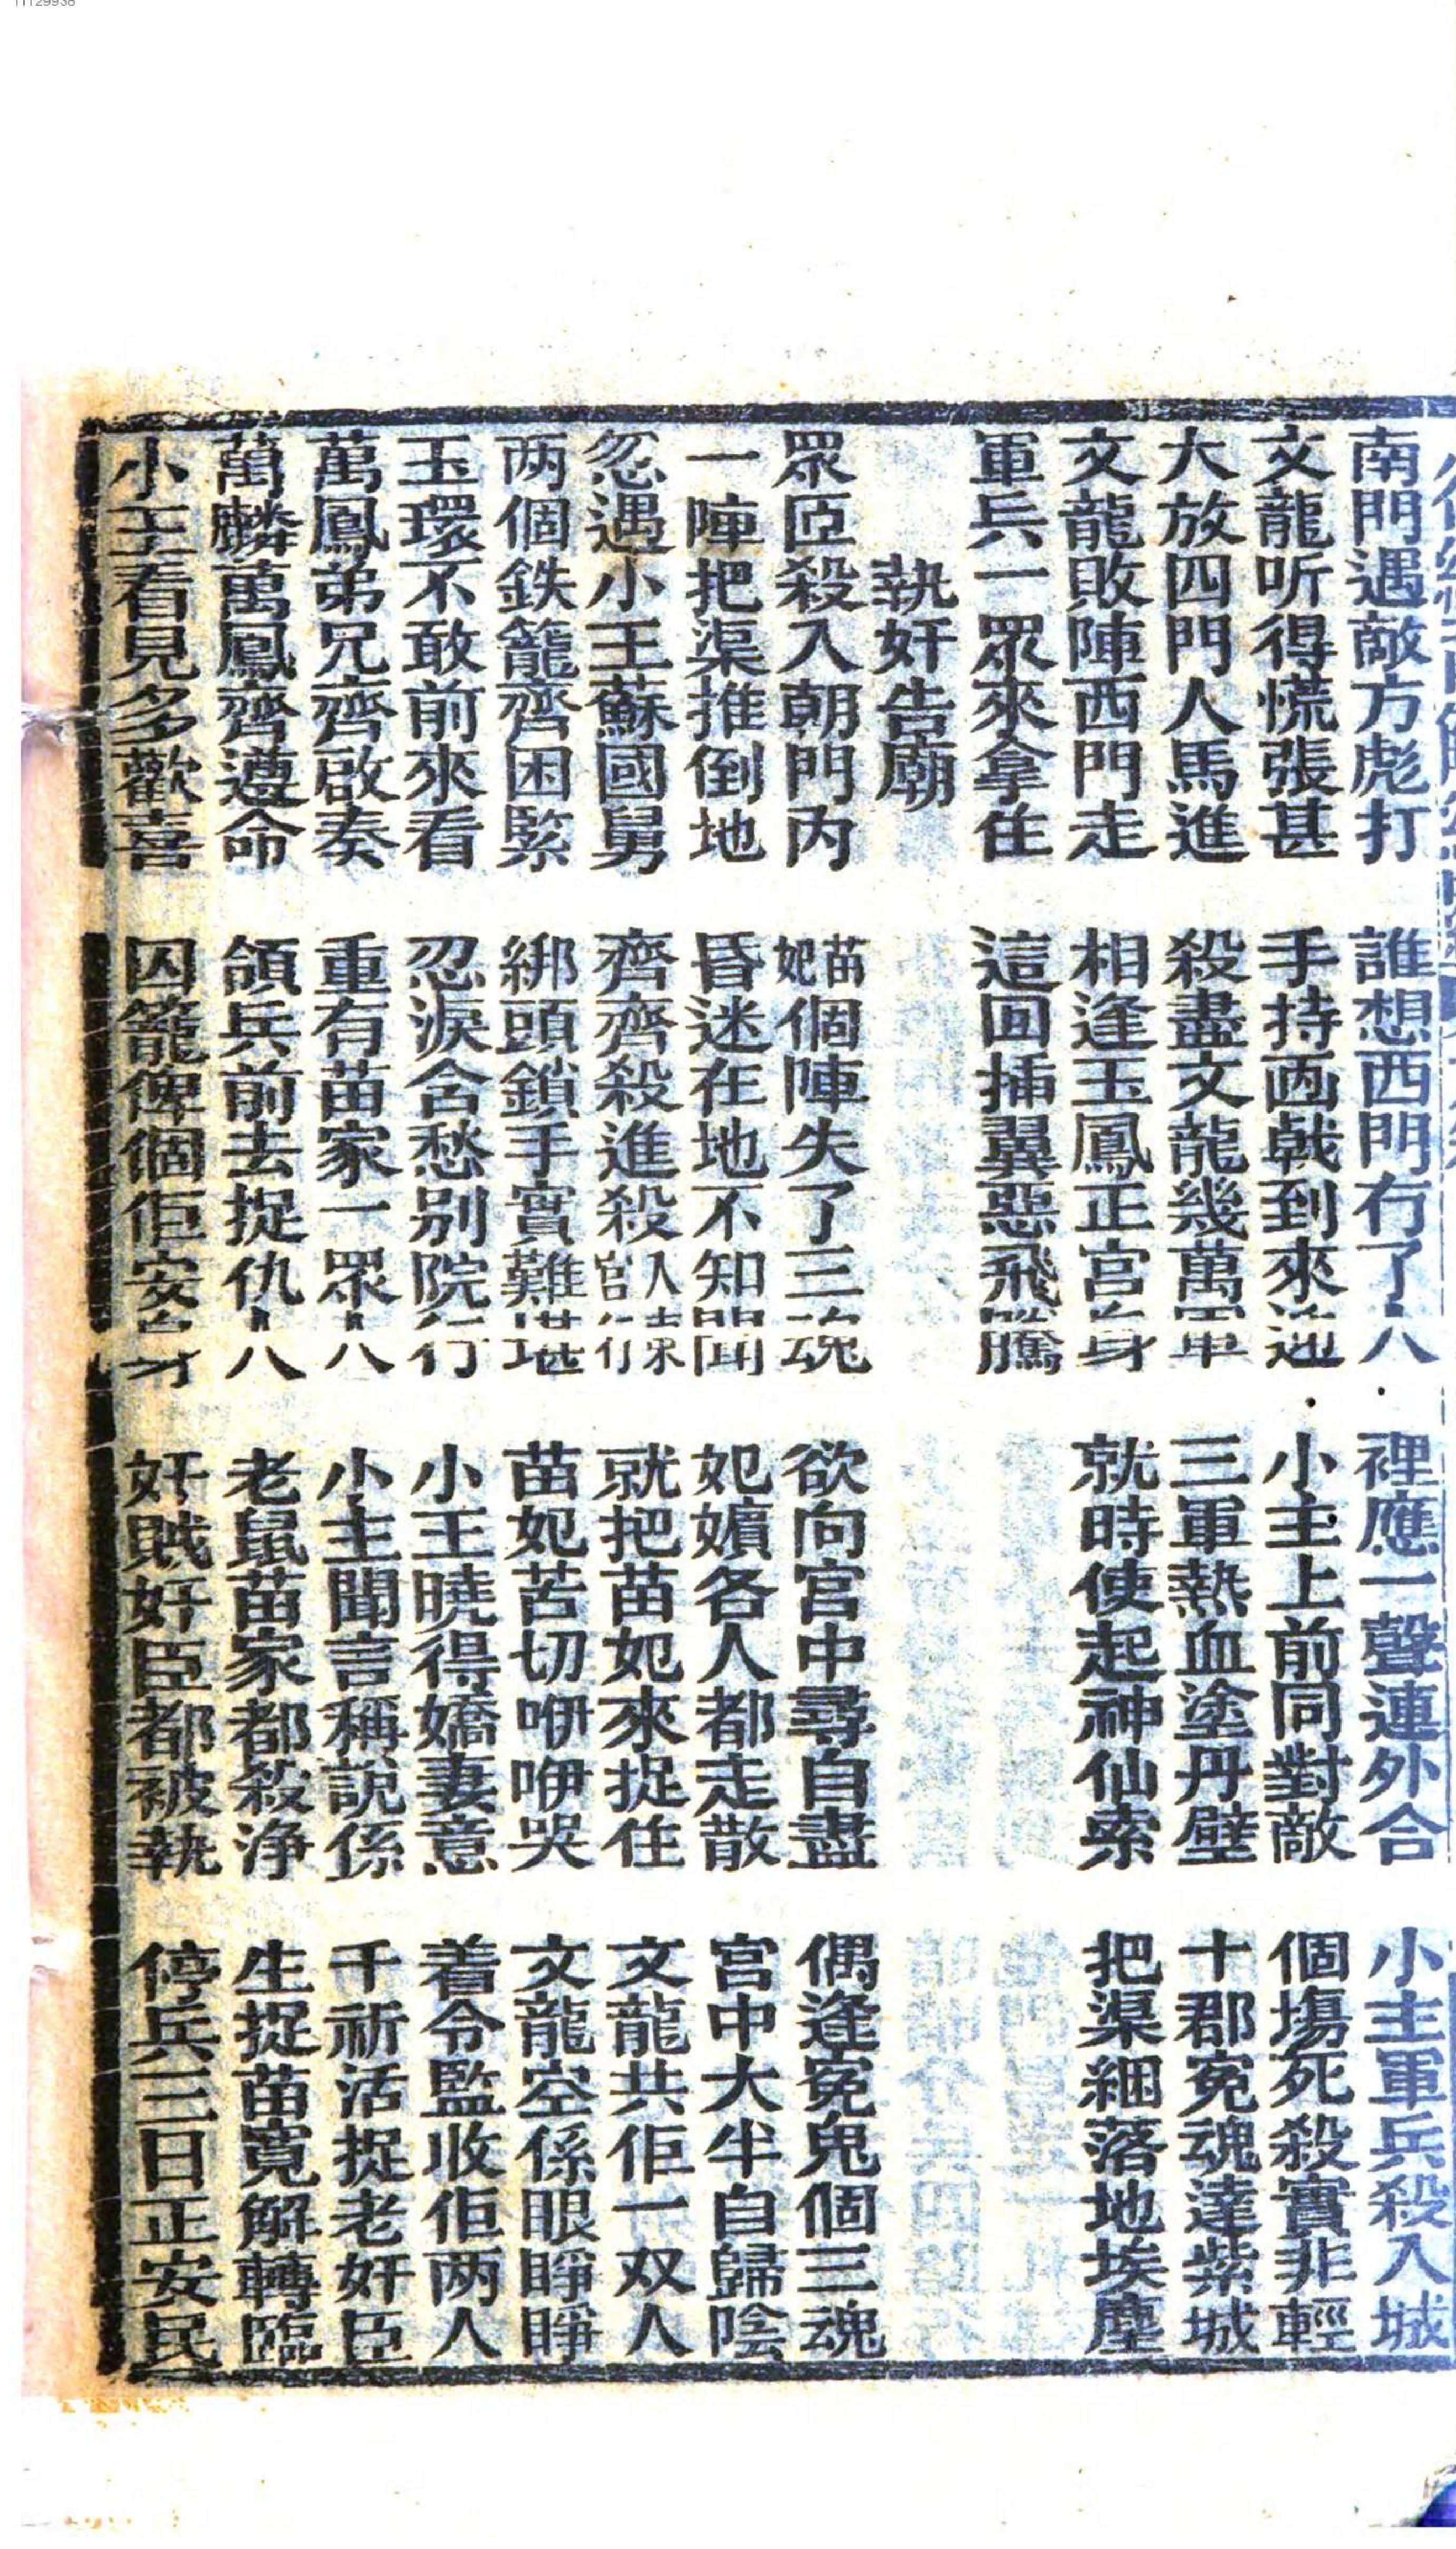 南門遇敵方彪打 誰想西門有了人 裡應一聲連外合 小主軍兵殺入城
文龍听得慌張甚 手持画戟到來迎 小主上前同對敵 個塲死殺實非輕
大放四門人馬進 殺盡文龍幾萬軍 三軍熱血塗丹壁 十郡冤魂達紫城
文龍敗陣西門走 相逢玉鳳正宮身 就時使起神仙索 把渠綑落地埃塵
軍兵一眾來拿住 這回插翼惡飛騰
執奸告廟
眾臣殺入朝門內 苗妃個陣失了三魂 欲向宮中尋自盡 偶逢冤鬼個三魂
一陣把渠推倒地 昏迷在地不知聞 妃嬪各人都走散 宮中大半自歸陰
忽遇小王蘇國舅 齊齊殺進殺官人 就把苗妃來捉住 文龍共佢一双人
两個鉄籠齊困緊 綁頭鎖手實難堪 苗妃苦切咿咿哭 文龍空係眼睜睜
玉環不敢前來看 忍淚含愁別院行 小王曉得嬌妻意 着令監收佢两人
萬鳳弟兄齊啟奏 重有苗家一眾人 小主聞言稱說係 千祈活捉老奸臣
萬麟萬鳳齊遵命 領兵前去捉仇人 老鼠苗家都殺淨 生捉苗寬解轉臨
小主看見多歡喜 囚籠俾個佢安身 奸賊奸臣都被執 停兵三日正安民
11129938